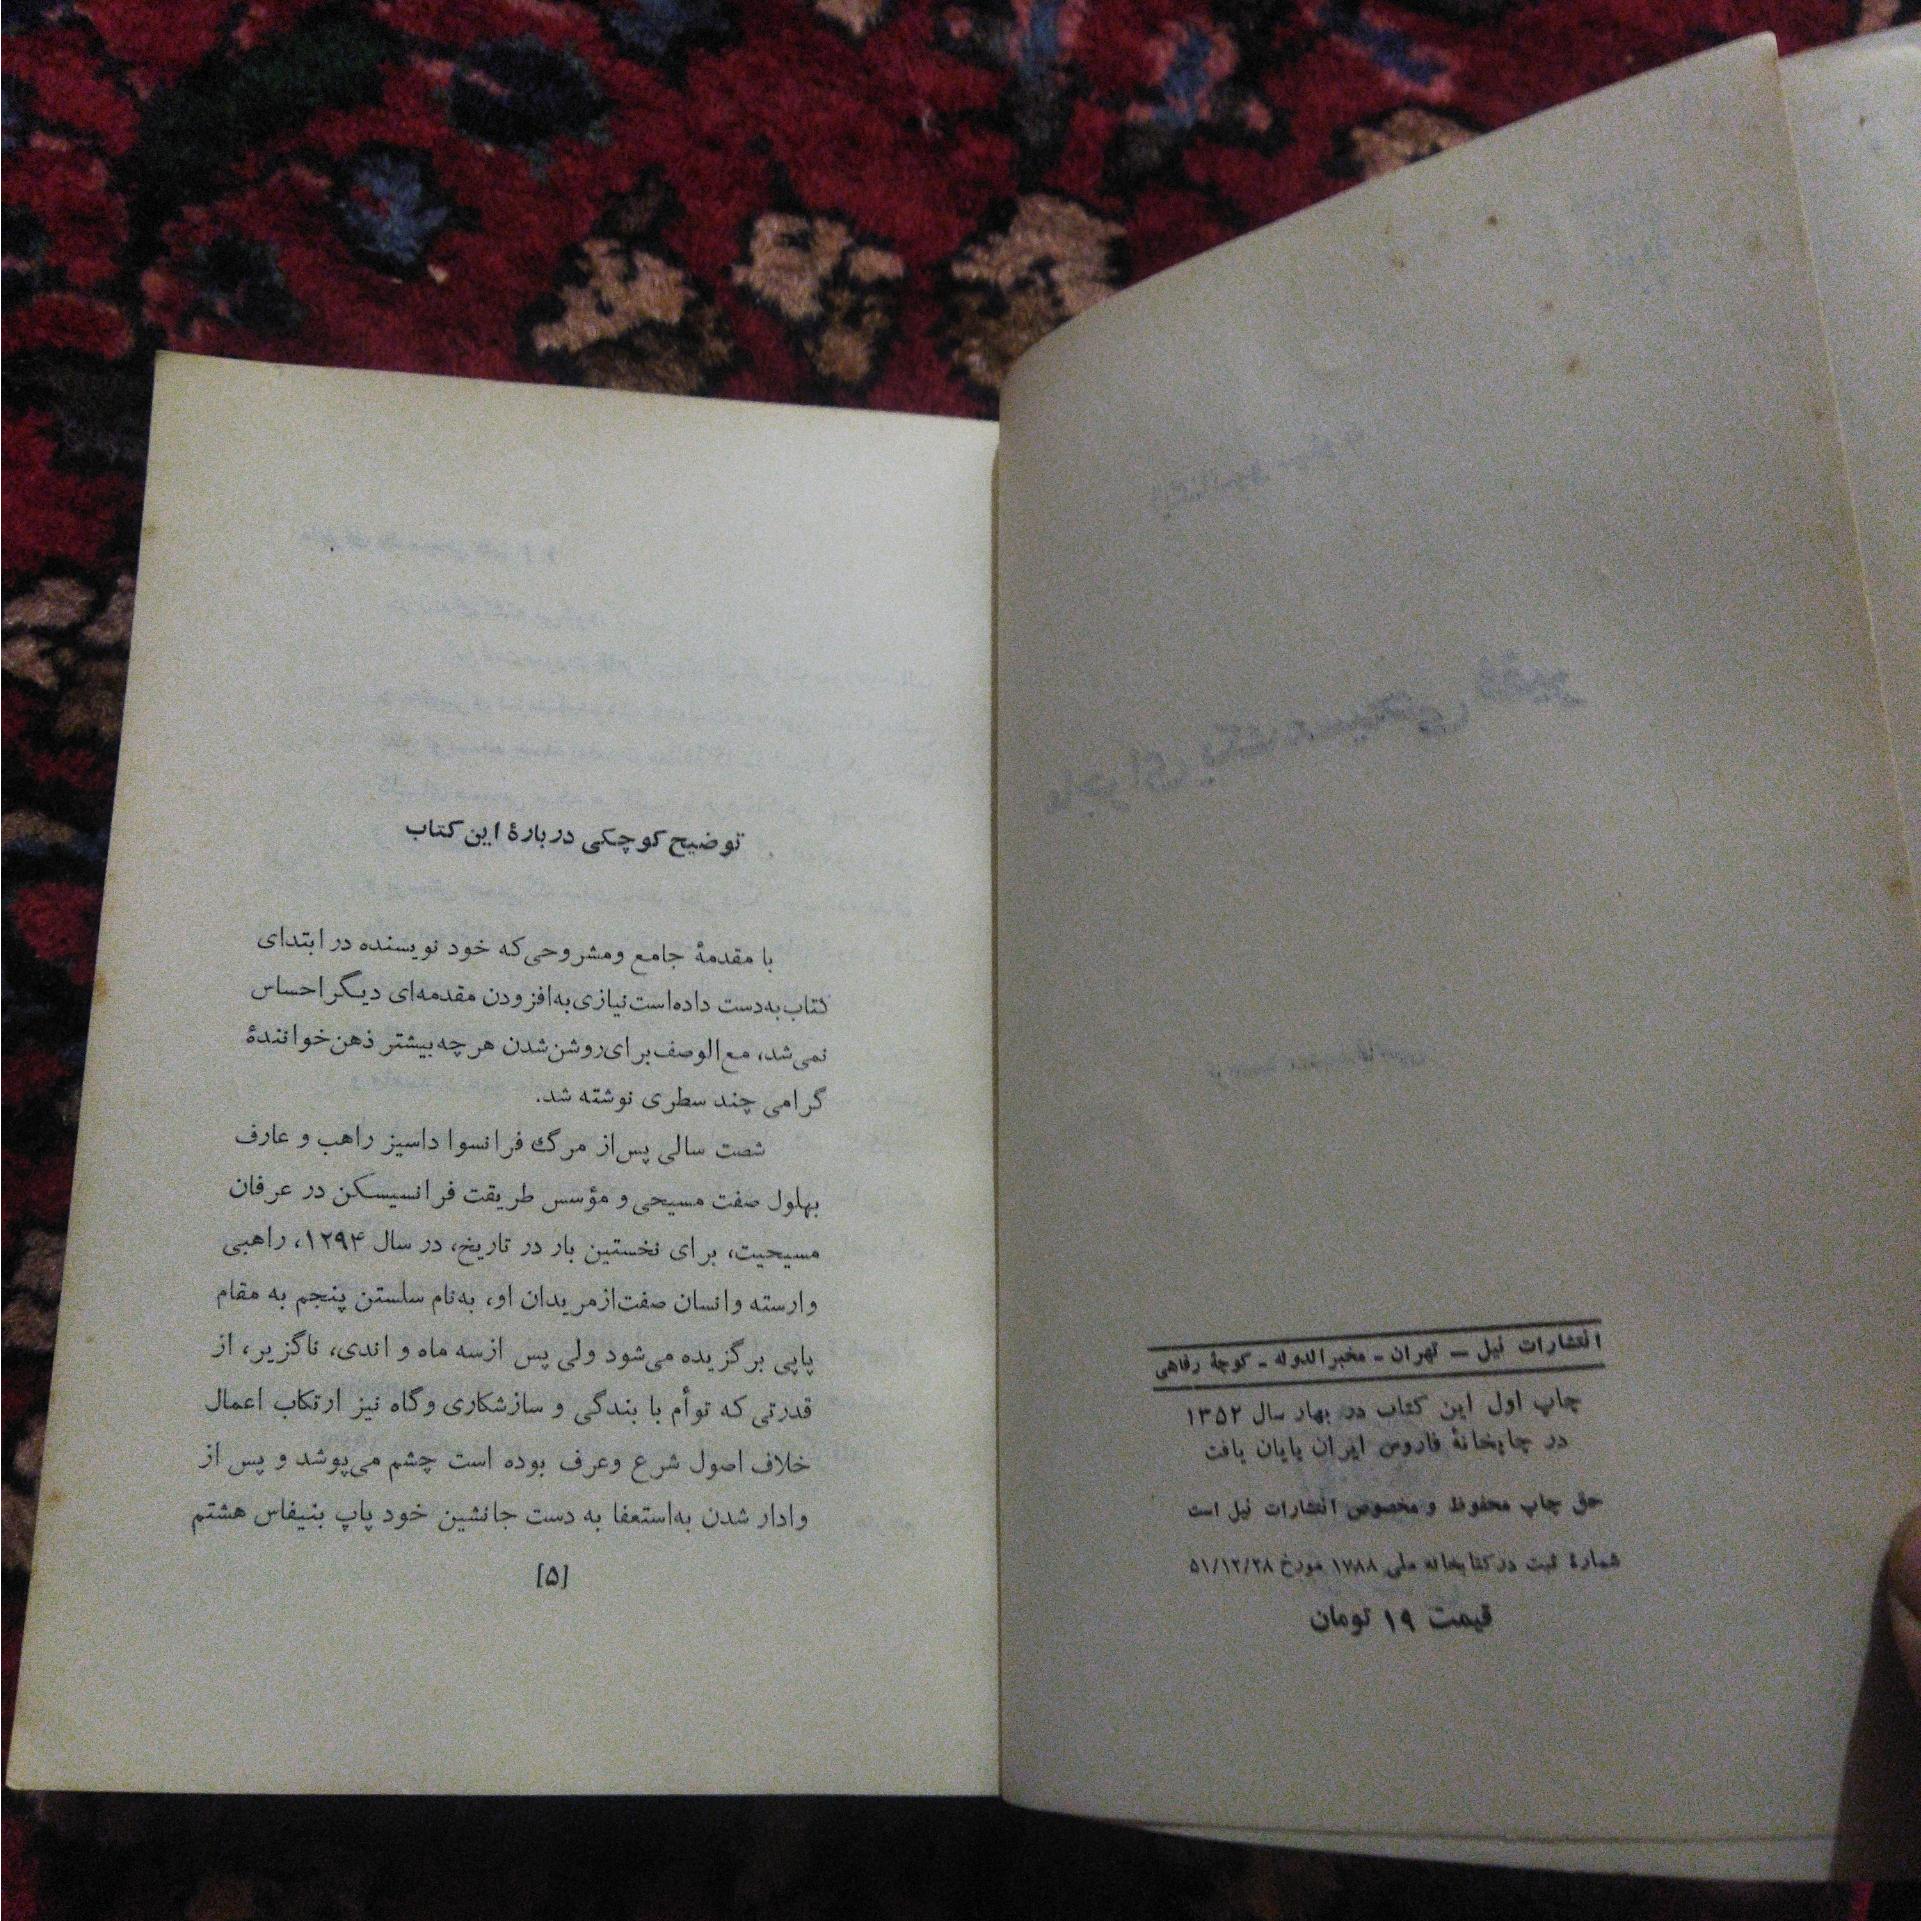 انتشارات نیل — تهران - مخبرالدوله - کوچهٔ رفاهی
چاپ اول این کتاب در بهار سال ۱۳۵۲
در چاپخانهٔ فاروس ایران پایان یافت
حق چاپ محفوظ و مخصوص انتشارات نیل است
شمارهٔ ثبت در کتابخانه ملی ۱۷۸۸ مورخ ۵۱/۱۲/۲۸
قیمت ۱۹ تومان
توضیح کوچکی دربارهٔ این کتاب
با مقدمهٔ جامع ومشروحی‌که خود نویسنده در ابتدای
کتاب به‌دست داده‌است نیازی به‌افزودن مقدمه‌ای دیگر احساس
نمی‌شد، مع‌الوصف برای‌روشن‌شدن هرچه‌بیشتر ذهن‌خوانندهٔ
گرامی چند سطری نوشته شد.
شصت سالی پس‌از مرگ فرانسوا داسیز راهب و عارف
بهلول صفت مسیحی و مؤسس طریقت فرانسیسکن در عرفان
مسیحیت، برای نخستین بار در تاریخ، در سال ۱۲۹۴، راهبی
وارسته وانسان صفت‌ازمریدان او، به‌نام سلستن پنجم به مقام
پاپی برگزیده می‌شود ولی پس ازسه ماه و اندی، ناگزیر، از
قدرتی که توأم با بندگی و سازشکاری وگاه نیز ارتکاب اعمال
خلاف اصول شرع وعرف بوده است چشم می‌پوشد و پس از
وادار شدن به‌استعفا به دست جانشین خود پاپ بنیفاس هشتم
[۵]